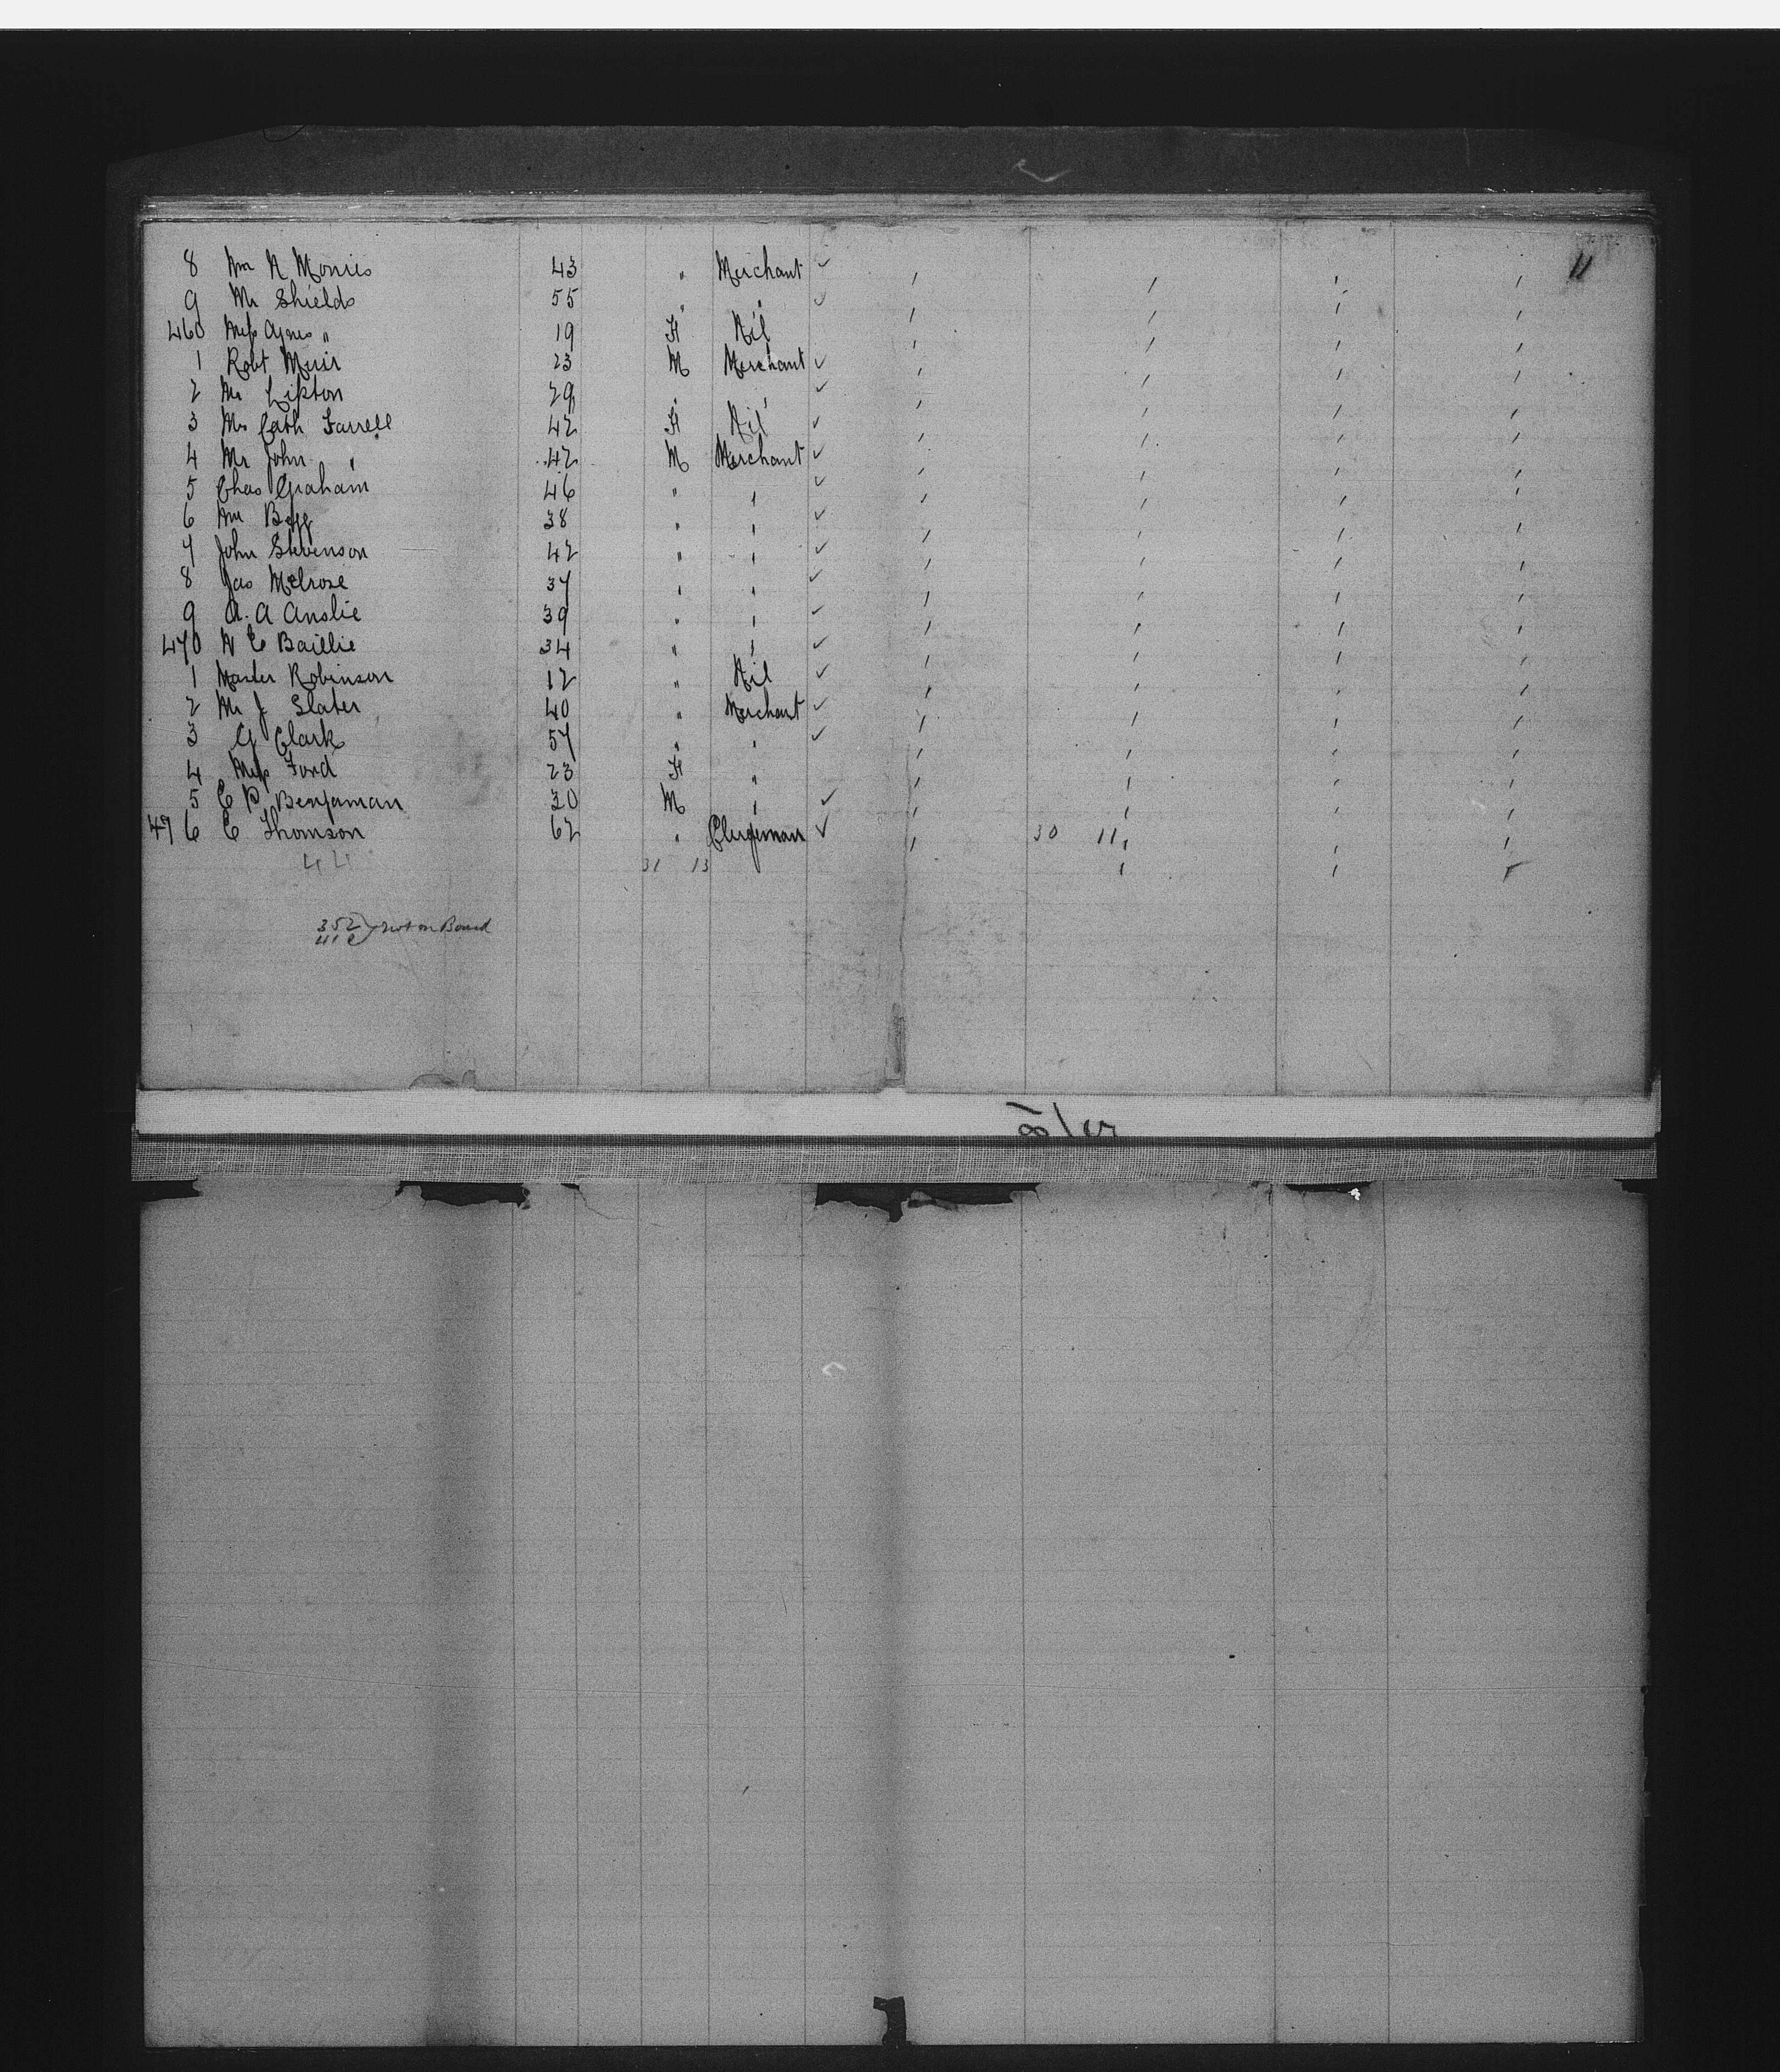 8 Wm A Morris 43 " Merchant ✓ 11
9 Mr Shields 55 " " ✓
460 Miss Agnes " 19 F Nil
1 Robt Muir 23 M Merchant ✓
2 Mr Lipton 29 " " ✓
3 Mrs Cath Farrell 42 F Nil ✓
4 Mr John " 42 M Merchant ✓
5 Chas Graham 46 " " ✓
6 Wm Begg 38 " " ✓
7 John Stevenson 42 " " ✓
8 Jas Melrose 37 " " ✓
9 A. A Anslie 39 " " ✓
470 A E Baillie 34 " " ✓
1 Master Robinson 12 " Nil ✓
2 Mr J Slater 40 " Merchant ✓
3 G Clark 57 " " ✓
4 Miss Ford 23 F "
5 E P Benjaman 30 M " ✓
476 E Thomson 62 " Clergeman ✓ 30 11
31 13
352
411 } not on Board